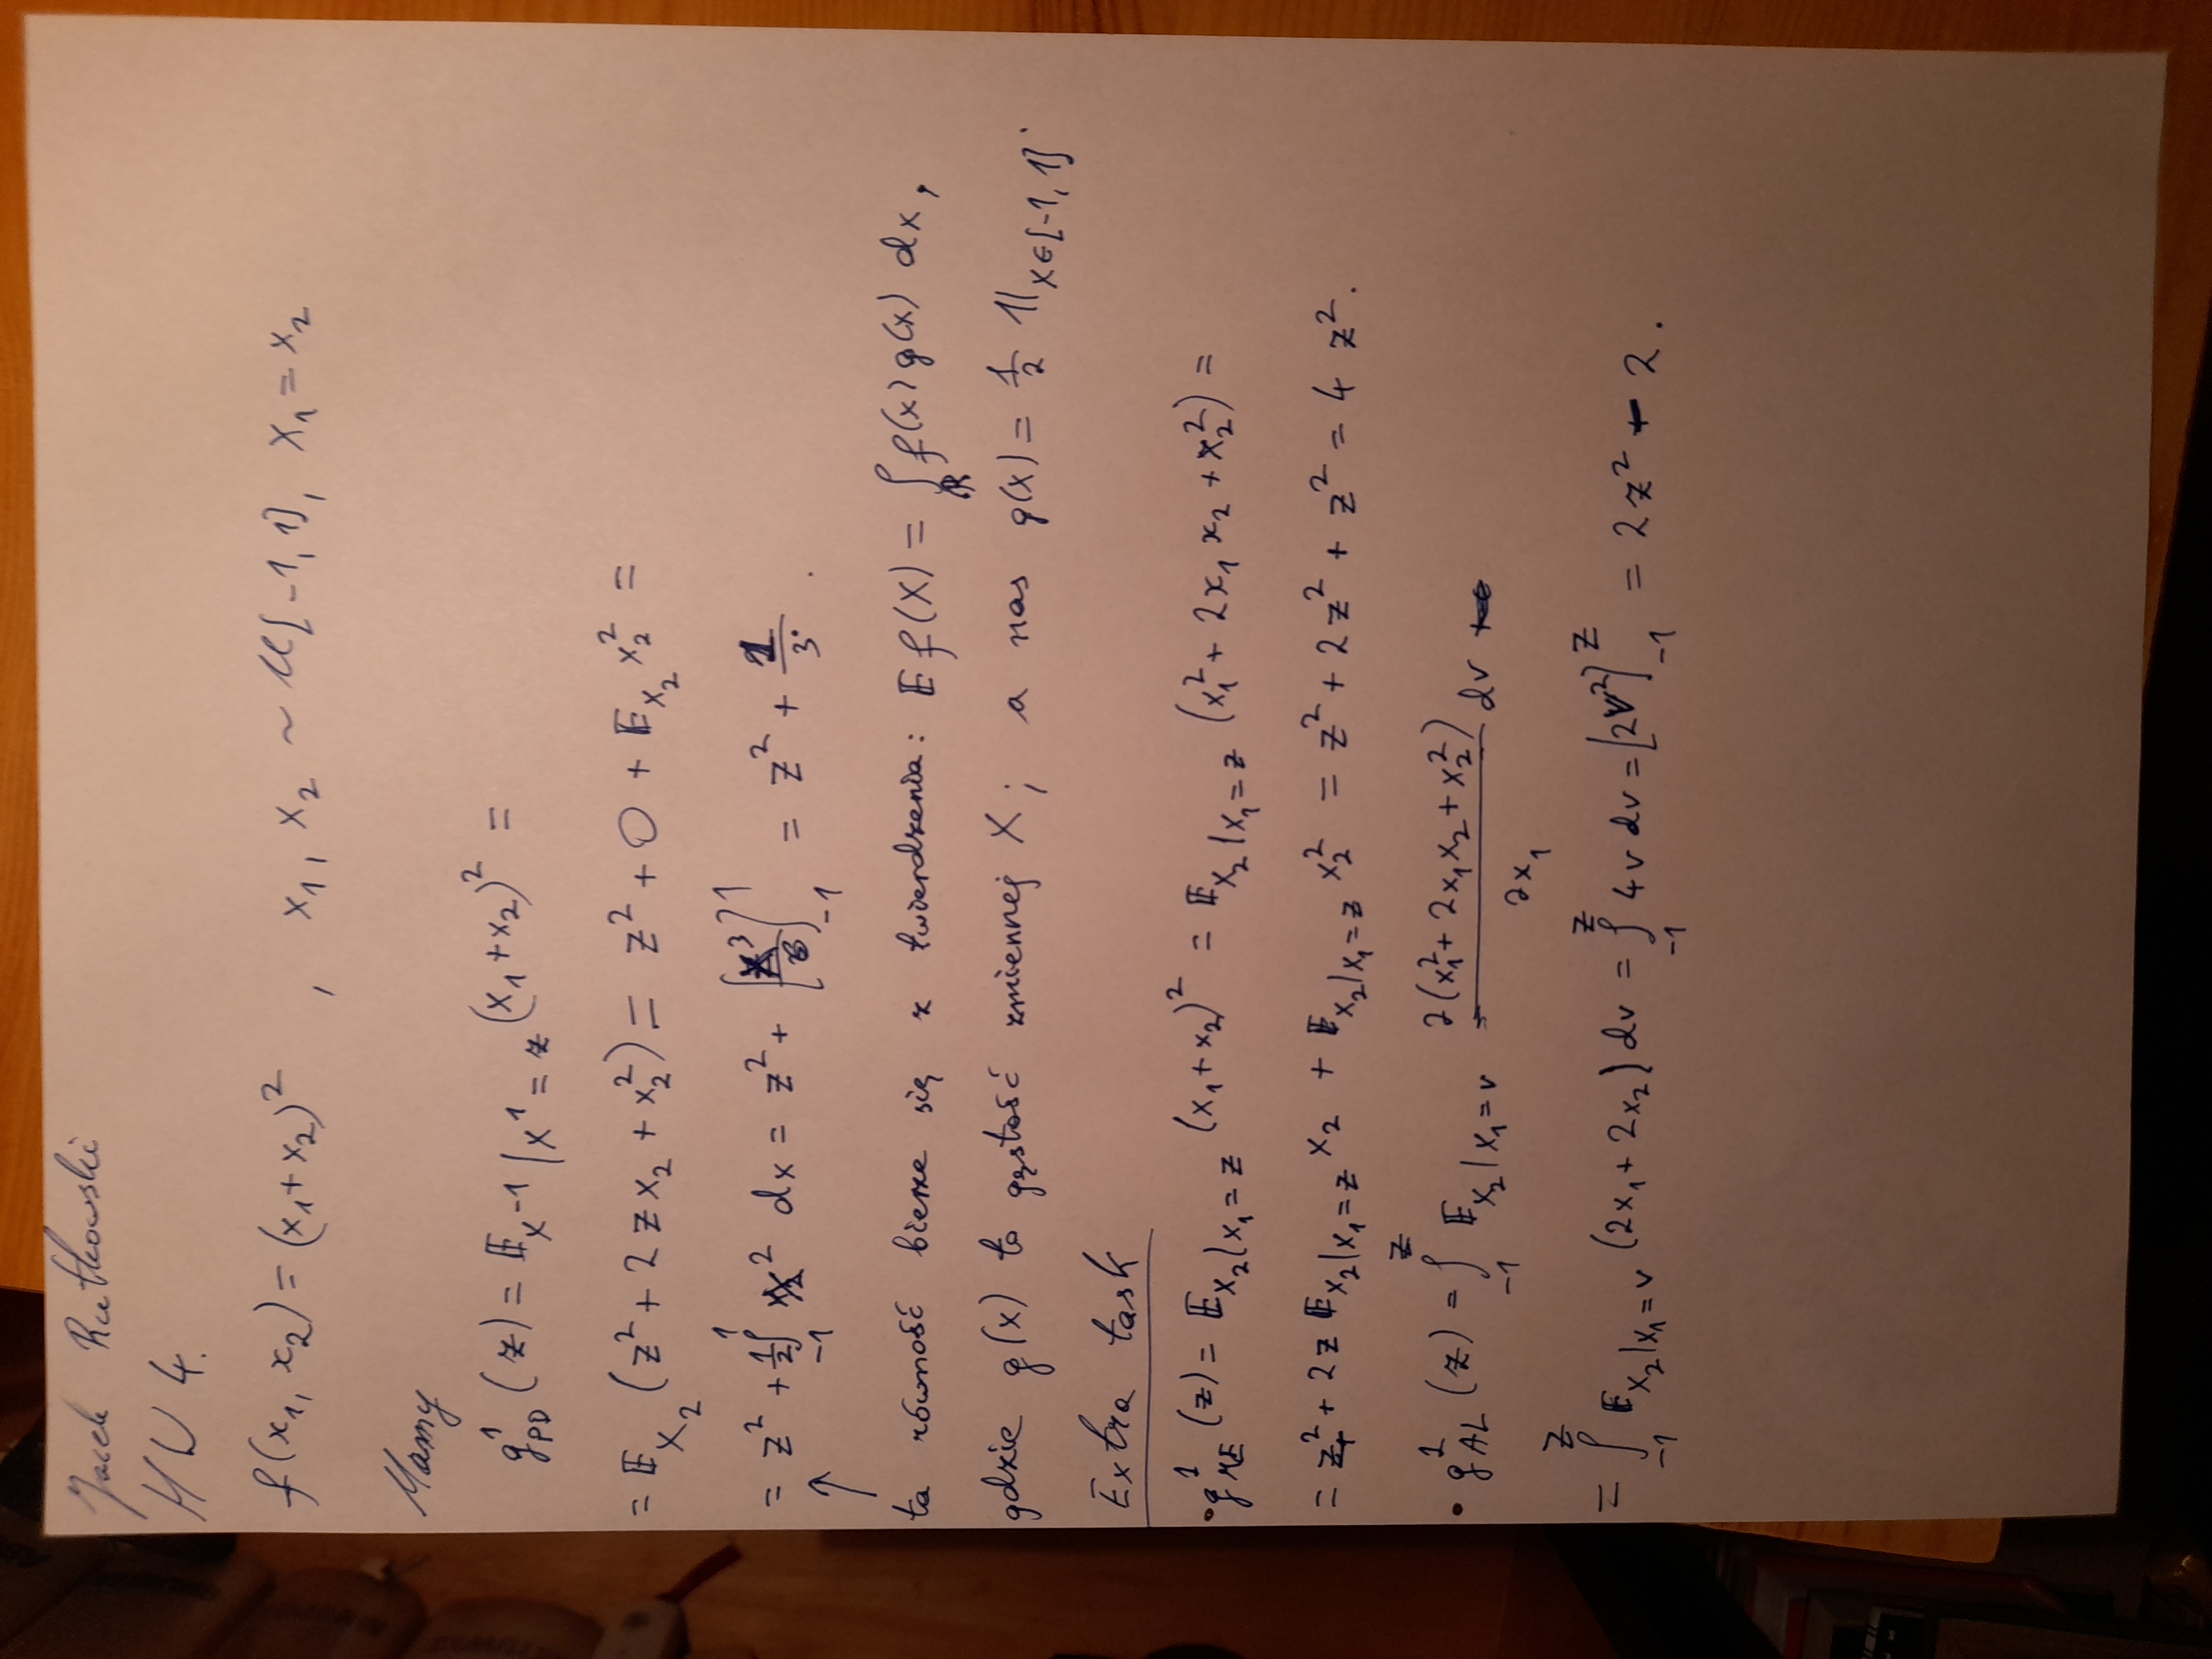 Jacek Rutkowski
HW 4.
f(x₁, x₂) = (x₁ + x₂)² , x₁, x₂ ~ U[-1, 1], x₁ = x₂
Mamy
g¹_PD (z) = 𝔼_{X^{-1} | X^1 = z} (x₁ + x₂)² =
= 𝔼_{X₂} (z² + 2 z x₂ + x₂²) = z² + 0 + 𝔼_{X₂} x₂² =
= z² + ½ ∫_{-1}^{1} x² dx = z² + [x³/6]_{-1}^{1} = z² + 1/3 .
↑
ta równość bierze się z twierdzenia: 𝔼 f(X) = ∫_ℝ f(x) g(x) dx,
gdzie g(x) to gęstość zmiennej X; a nas g(x) = ½ 𝟙_{x∈[-1, 1]}.
Extra task
• g¹_ME (z) = 𝔼_{X₂|X₁=z} (x₁ + x₂)² = 𝔼_{X₂|X₁=z} (x₁² + 2x₁ x₂ + x₂²) =
= z² + 2z 𝔼_{X₂|X₁=z} x₂ + 𝔼_{X₂|X₁=z} x₂² = z² + 2z² + z² = 4 z².
• g¹_AL (z) = ∫_{-1}^{z} 𝔼_{X₂|X₁=v} ∂(x₁² + 2x₁x₂ + x₂²)/∂x₁ dv
= ∫_{-1}^{z} 𝔼_{X₂|X₁=v} (2x₁ + 2x₂) dv = ∫_{-1}^{z} 4v dv = [2v²]_{-1}^{z} = 2z² - 2 .